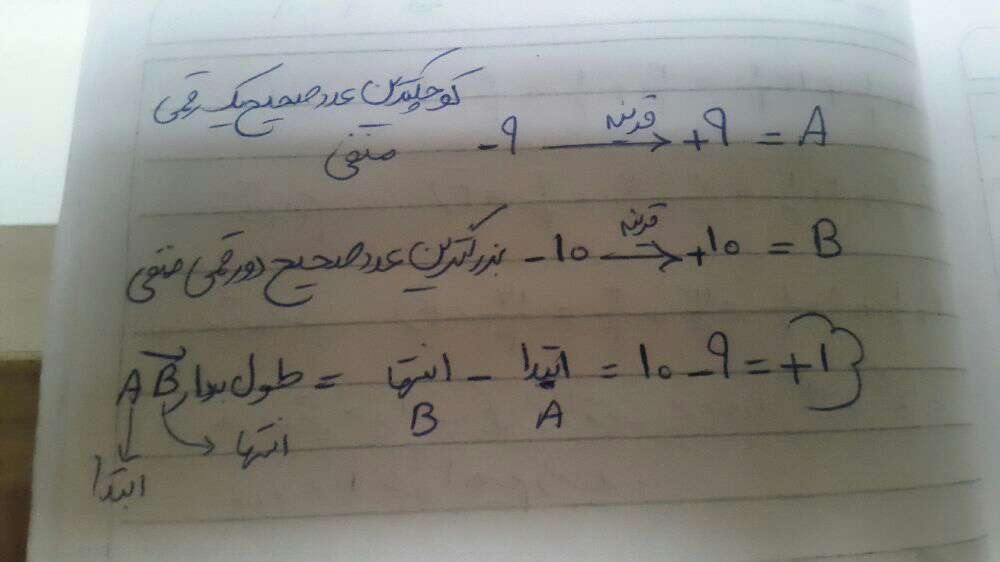 کوچکترین عدد صحیح یک رقمی
منفی -9 قرینه → +9 = A
بزرگترین عدد صحیح دو رقمی منفی -10 قرینه → +10 = B
AB طول بردار = انتها - ابتدا = 10 - 9 = +1
B A
انتها
ابتدا